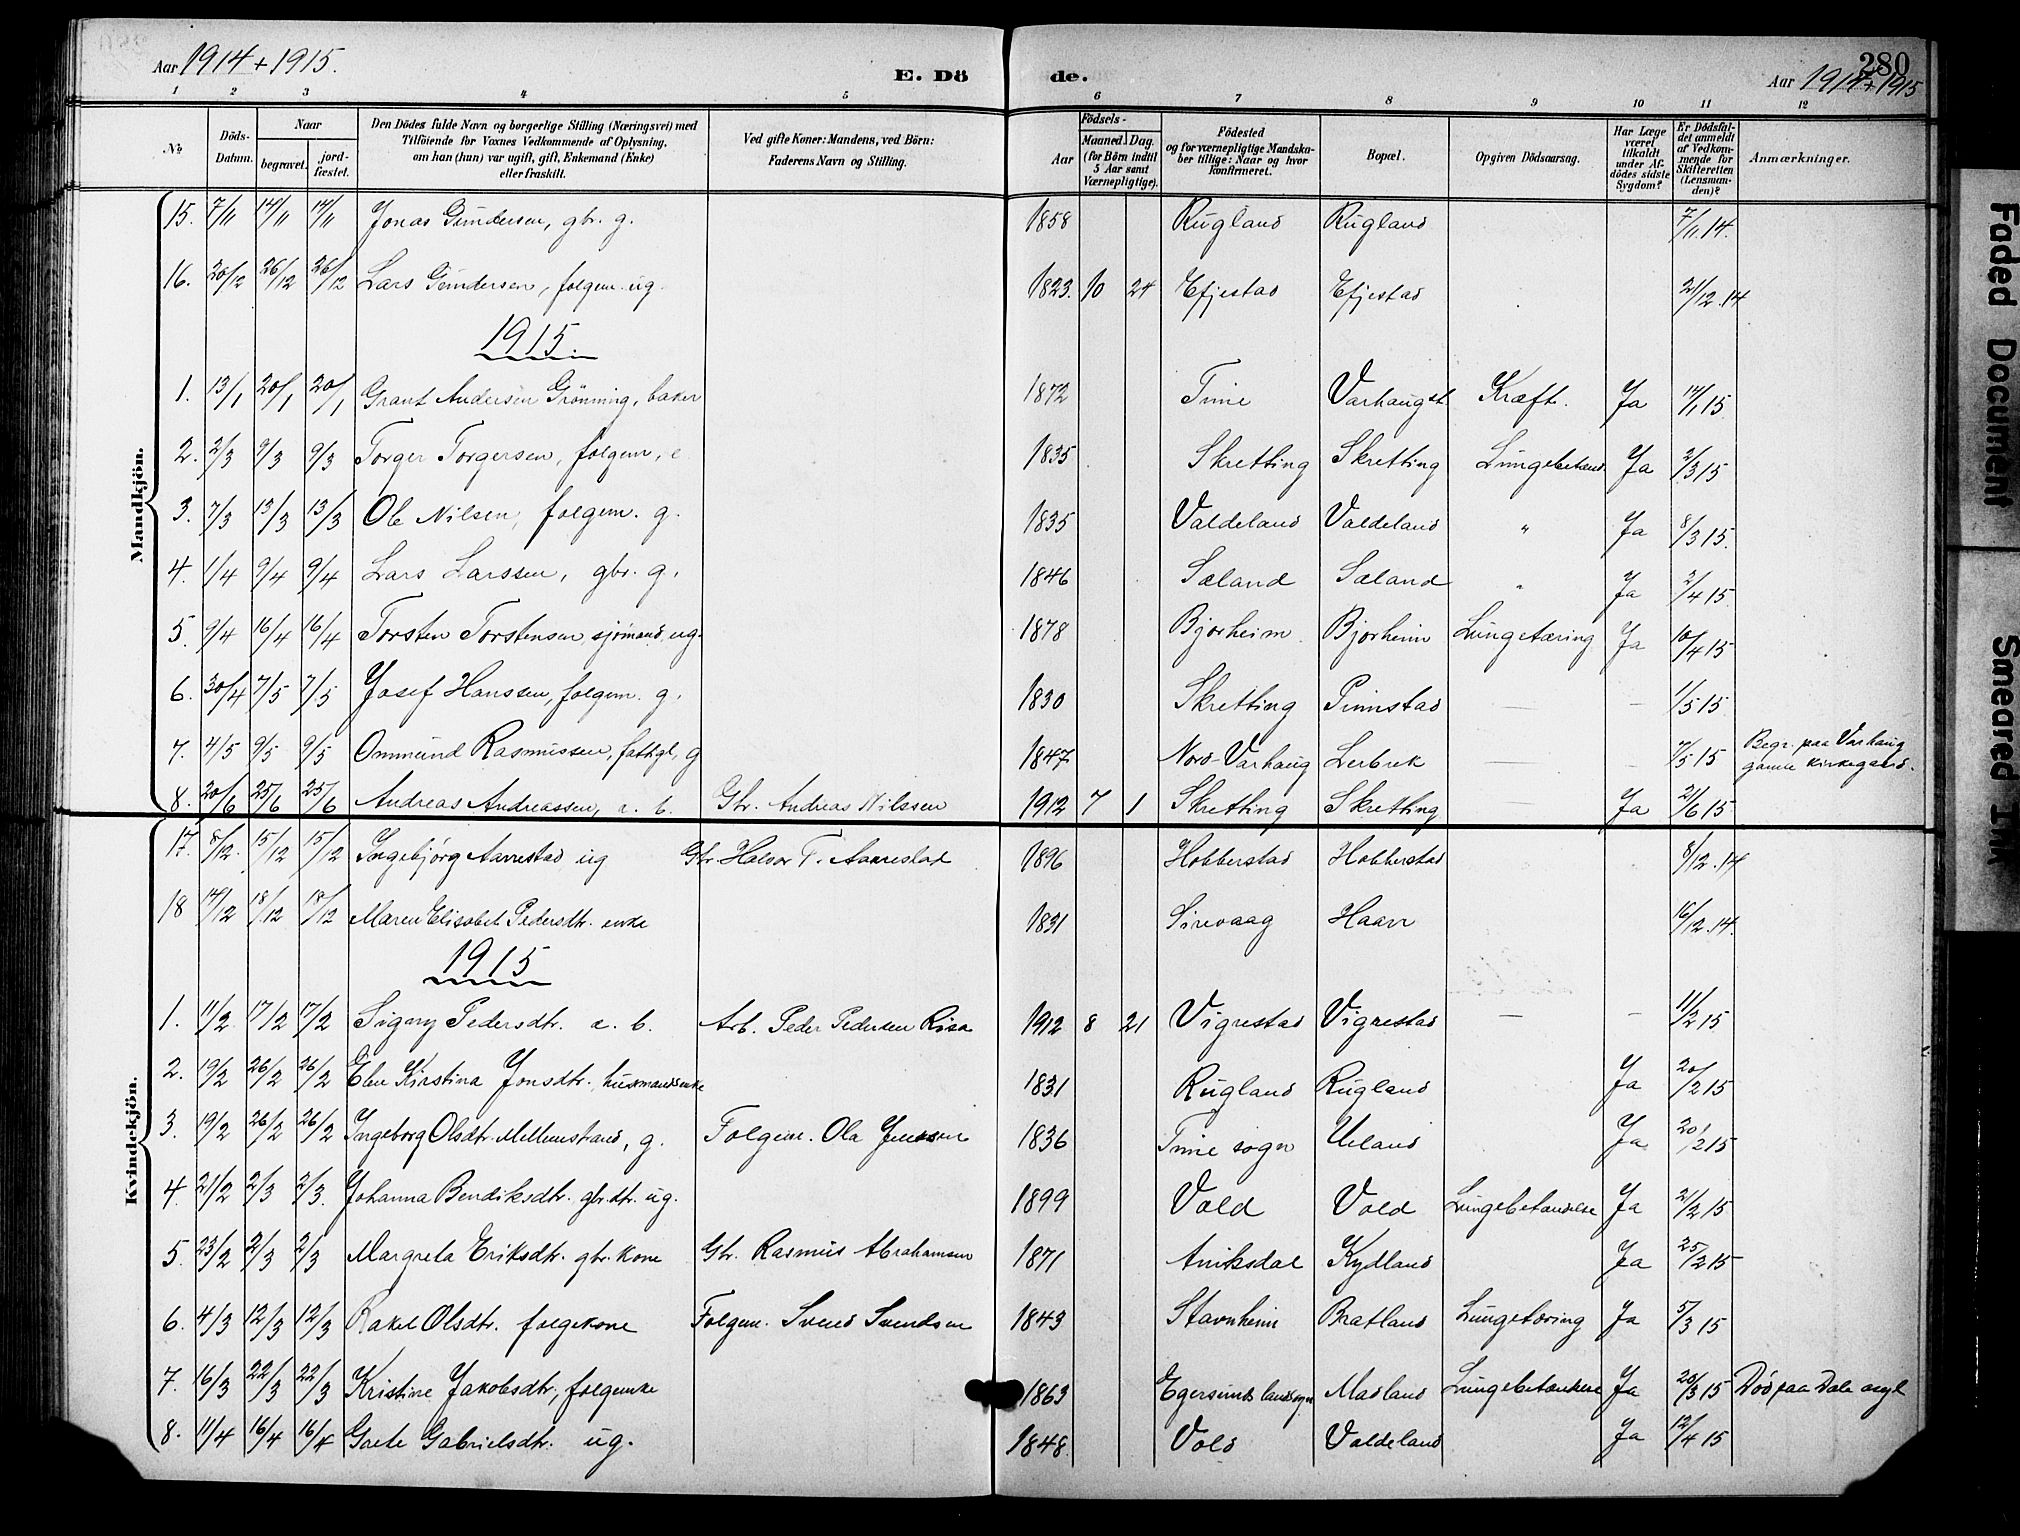 Aar 1914 + 1915.
E. Dö de.
280
Aar 1914 + 1915
1 2 3 4 5 6 7 8 9 10 11 12
No.
Döds-Datum.
Naar
begravet.
jordfæstet.
Den Dödes fulde Navn og borgerlige Stilling (Næringsvei) med
Tilföiende for Voxnes Vedkommende af Oplysning,
om han (hun) var ugift, gift, Enkemand (Enke)
eller fraskilt.
Ved gifte Koner: Mandens, ved Börn:
Faderens Navn og Stilling.
Födsels-
Aar
Maaned. Dag.
(for Börn indtil
5 Aar samt
Værnepligtige).
Födested
og for værnepligtige Mandska-
ber tillige: Naar og hvor
konfirmeret.
Bopæl.
Opgiven Dödsaarsag.
Har Læge
været
tilkaldt
under Af-
dödes sidste
Sygdom?
Er Dödsfal-
det anmeldt
af Vedkom-
mende for
Skifteretten
(Lensman-
den)?
Anmærkninger.
Mandkjön.
15. 7/11 14/11 14/11 Jonas Gundersen, gbr. g. 1858 Rugland Rugland 7/11.14.
16. 20/12 26/12 26/12 Lars Gundersen, folgem. ug. 1823. 10 24 Efjestad Efjestad 21/12.14
1915.
1. 13/1 20/1 20/1 Grant Andersen Grönning, baker 1872 Time Varhaugst. Kræft. Ja 14/1 15
2. 2/3 9/3 9/3 Torger Torgersen, folgem, e 1835 Skretting Skretting Lungebetænd. Ja 2/3 15
3. 7/3 13/3 13/3 Ole Nilsen, folgem. g. 1835 Valdeland Valdeland " Ja 8/3 15.
4. 1/4 9/4 9/4 Lars Larssen, gbr. g. 1846 Sæland Sæland " Ja 2/4 15.
5. 9/4 16/4 16/4 Torsten Torstensen, sjömand, ug. 1878 Bjorheim Bjorheim Lungetæring Ja 10/4 15
6. 30/4 7/5 7/5 Josef Hanssen, folgem. g. 1830 Skretting Pinnstad — – 1/5 15
7. 4/5 9/5 9/5 Ommund Rasmussen, fattigl, g 1847 Nord-Varhaug Lerbrek — – 7/5 15 Begr. paa Varhaug
gamle kirkegaard.
8. 20/6 25/6 25/6 Andreas Andreassen, e. b. Gbr. Andreas Nilssen 1912 7 1 Skretting Skretting Ja 21/6 15
Kvindekjön.
17. 8/12. 15/12 15/12 Ingebjörg Aarrestad ug Gbr. Halvor T. Aarrestad 1896 Hobberstad Hobberstad 8/12.14
18 14/12 18/12 18/12 Maren Elisabet Pedersdtr. enke 1831 Sirevaag Haarr 16/12.14.
1915
1. 11/2 17/2 17/2 Signy Pedersdtr. e. b. Arb. Peder Pedersen Risa 1912 8 21 Vigrestad Vigrestad — – 11/2 15
2. 19/2 26/2 26/2 Elen Kirstina Jonsdtr. husmandsenke 1831 Rugland Rugland Ja 20/2 15
3. 19/2 26/2 26/2 Ingeborg Olsdtr. Mellemstrand, g. Folgem. Ola Jenssen 1836 Time sogn Ueland Ja 20/2 15
4. 21/2 2/3 2/3. Johanna Bendiksdtr. gbr.dtr. ug. 1899 Vold Vold Lungebetændelse Ja 21/2 15
5 23/2 2/3 2/3 Margreta Eriksdtr. gbr.kone Gbr. Rasmus Abrahamsen 1871 Aniksdal Kydland Ja 25/2 15
6. 4/3 12/3 12/3 Rakel Olsdtr. folgekone Folgem. Svend Svendsen 1843 Stavnheim Bratland Lungetæring Ja 5/3 15
7. 16/3 22/3 22/3 Kristine Jakobsdtr., folgenke 1863 Egersunds landsogn Madland Lungebetændelse Ja 20/3 15 Död paa Dale asyl
8. 11/4 16/4 16/4 Goete Gabrielsdtr. ug. 1848. Vold Valdeland Ja 12/4 15
Faded Document
Smeared Ink